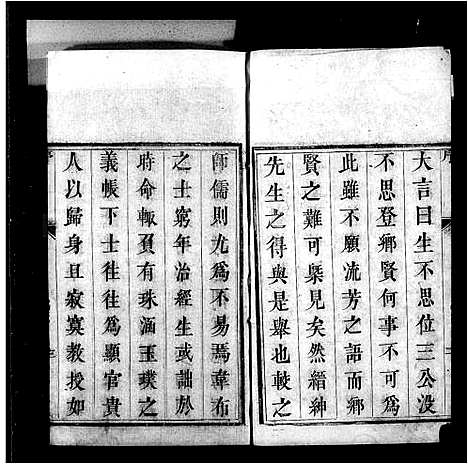 大言曰生不思位三公没
不思登鄉賢何事不可為
此雖不願流芳之語而鄉
賢之難可槩見矣然縉紳
先生之得與是舉也較之
師儒則尤為不易焉韋布
之士窮年治經生或詘於
時命輙負有珠涵玉璞之
義帳下士往往為顯官貴
人以歸身且寂寞教授如